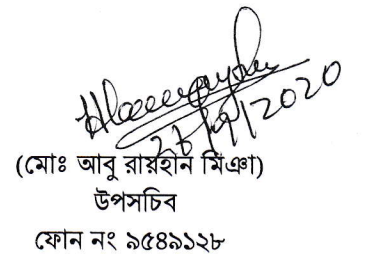 2020
(মোঃ আবু রায়হান মিঞা)
উপসচিব
ফোন নং ৯৫৪৯১২৮